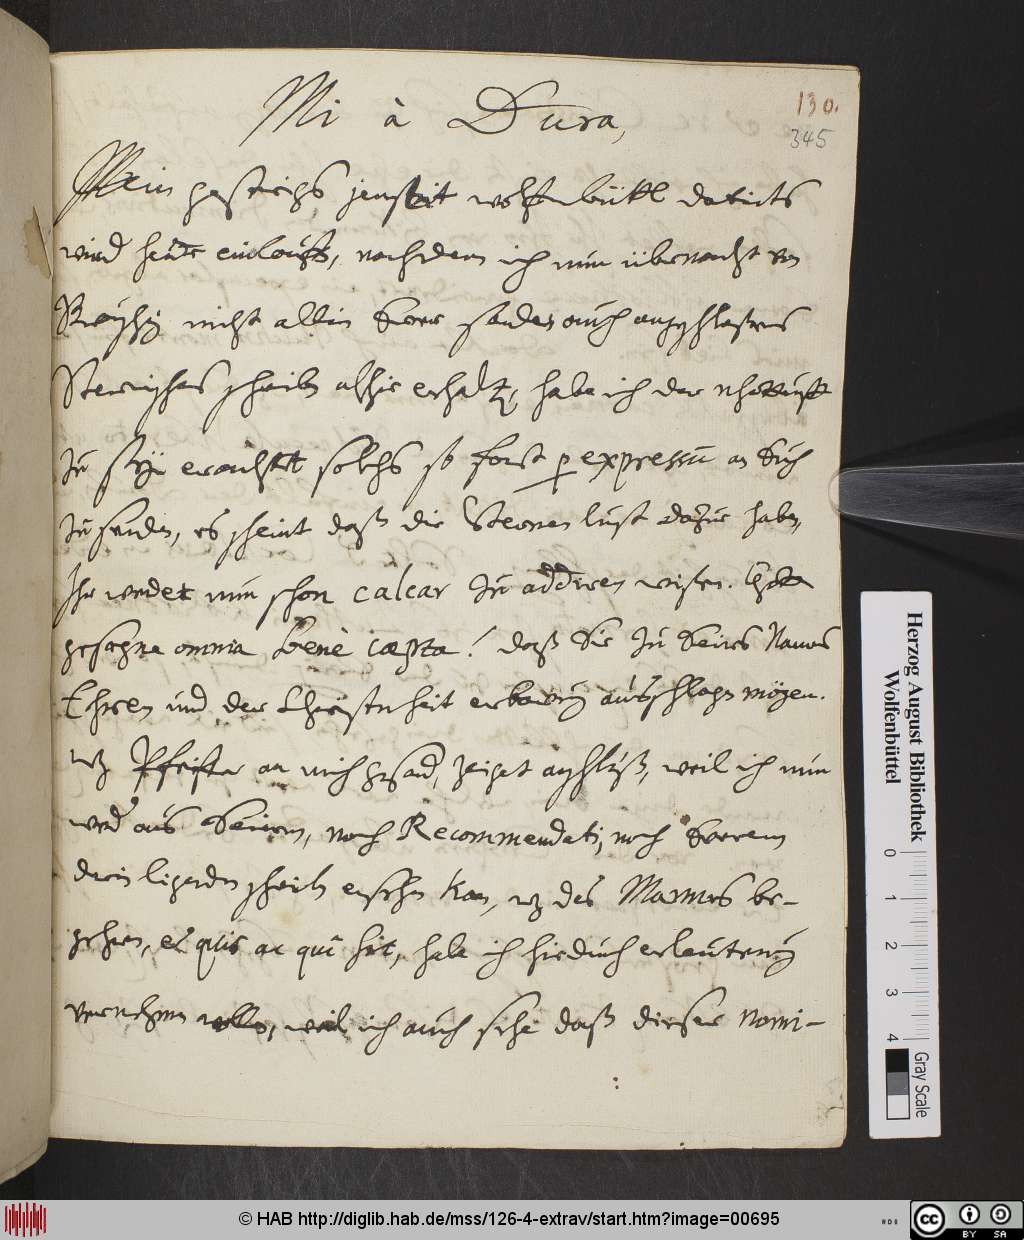 Mi à Dura,
130.
345
Mein gestriges jenseit wolffenbüttl datirts
wird heüte einlouffen, nachdem ich nun übernacht von
nicht allein Ewer sonder auch angeschlossenes
schreiben alhie erhaltn, habe ich der
zu sein erachtet solchs so fort p expressū an Euch
zu senden, es scheint daß die Sternen lust dazue haben,
Ihr werdet nun schon calcar zu addiren wissen. Gott
gesegne omnia bene cæpta! daß Sie zu Seines Namens
Ehren und der Christenheit erbawung außschlagen mögen.
wz Pfeiffer an mich gesand, zeiget anschluß, weil ich nun
weder aus Seinem, noch Recommendati, noch Ewerem
schreiben ersehen kan, wz des Mannes be-
gehren, et quis ac qui sit, habe ich hiedurch erleuterung
vernehmen wollen, weil ich auch sehe daß dieser nomi-
Herzog August Bibliothek
Wolfenbüttel
0 1 2 3 4
Gray Scale
© HAB http://diglib.hab.de/mss/126-4-extrav/start.htm?image=00695
cc BY SA